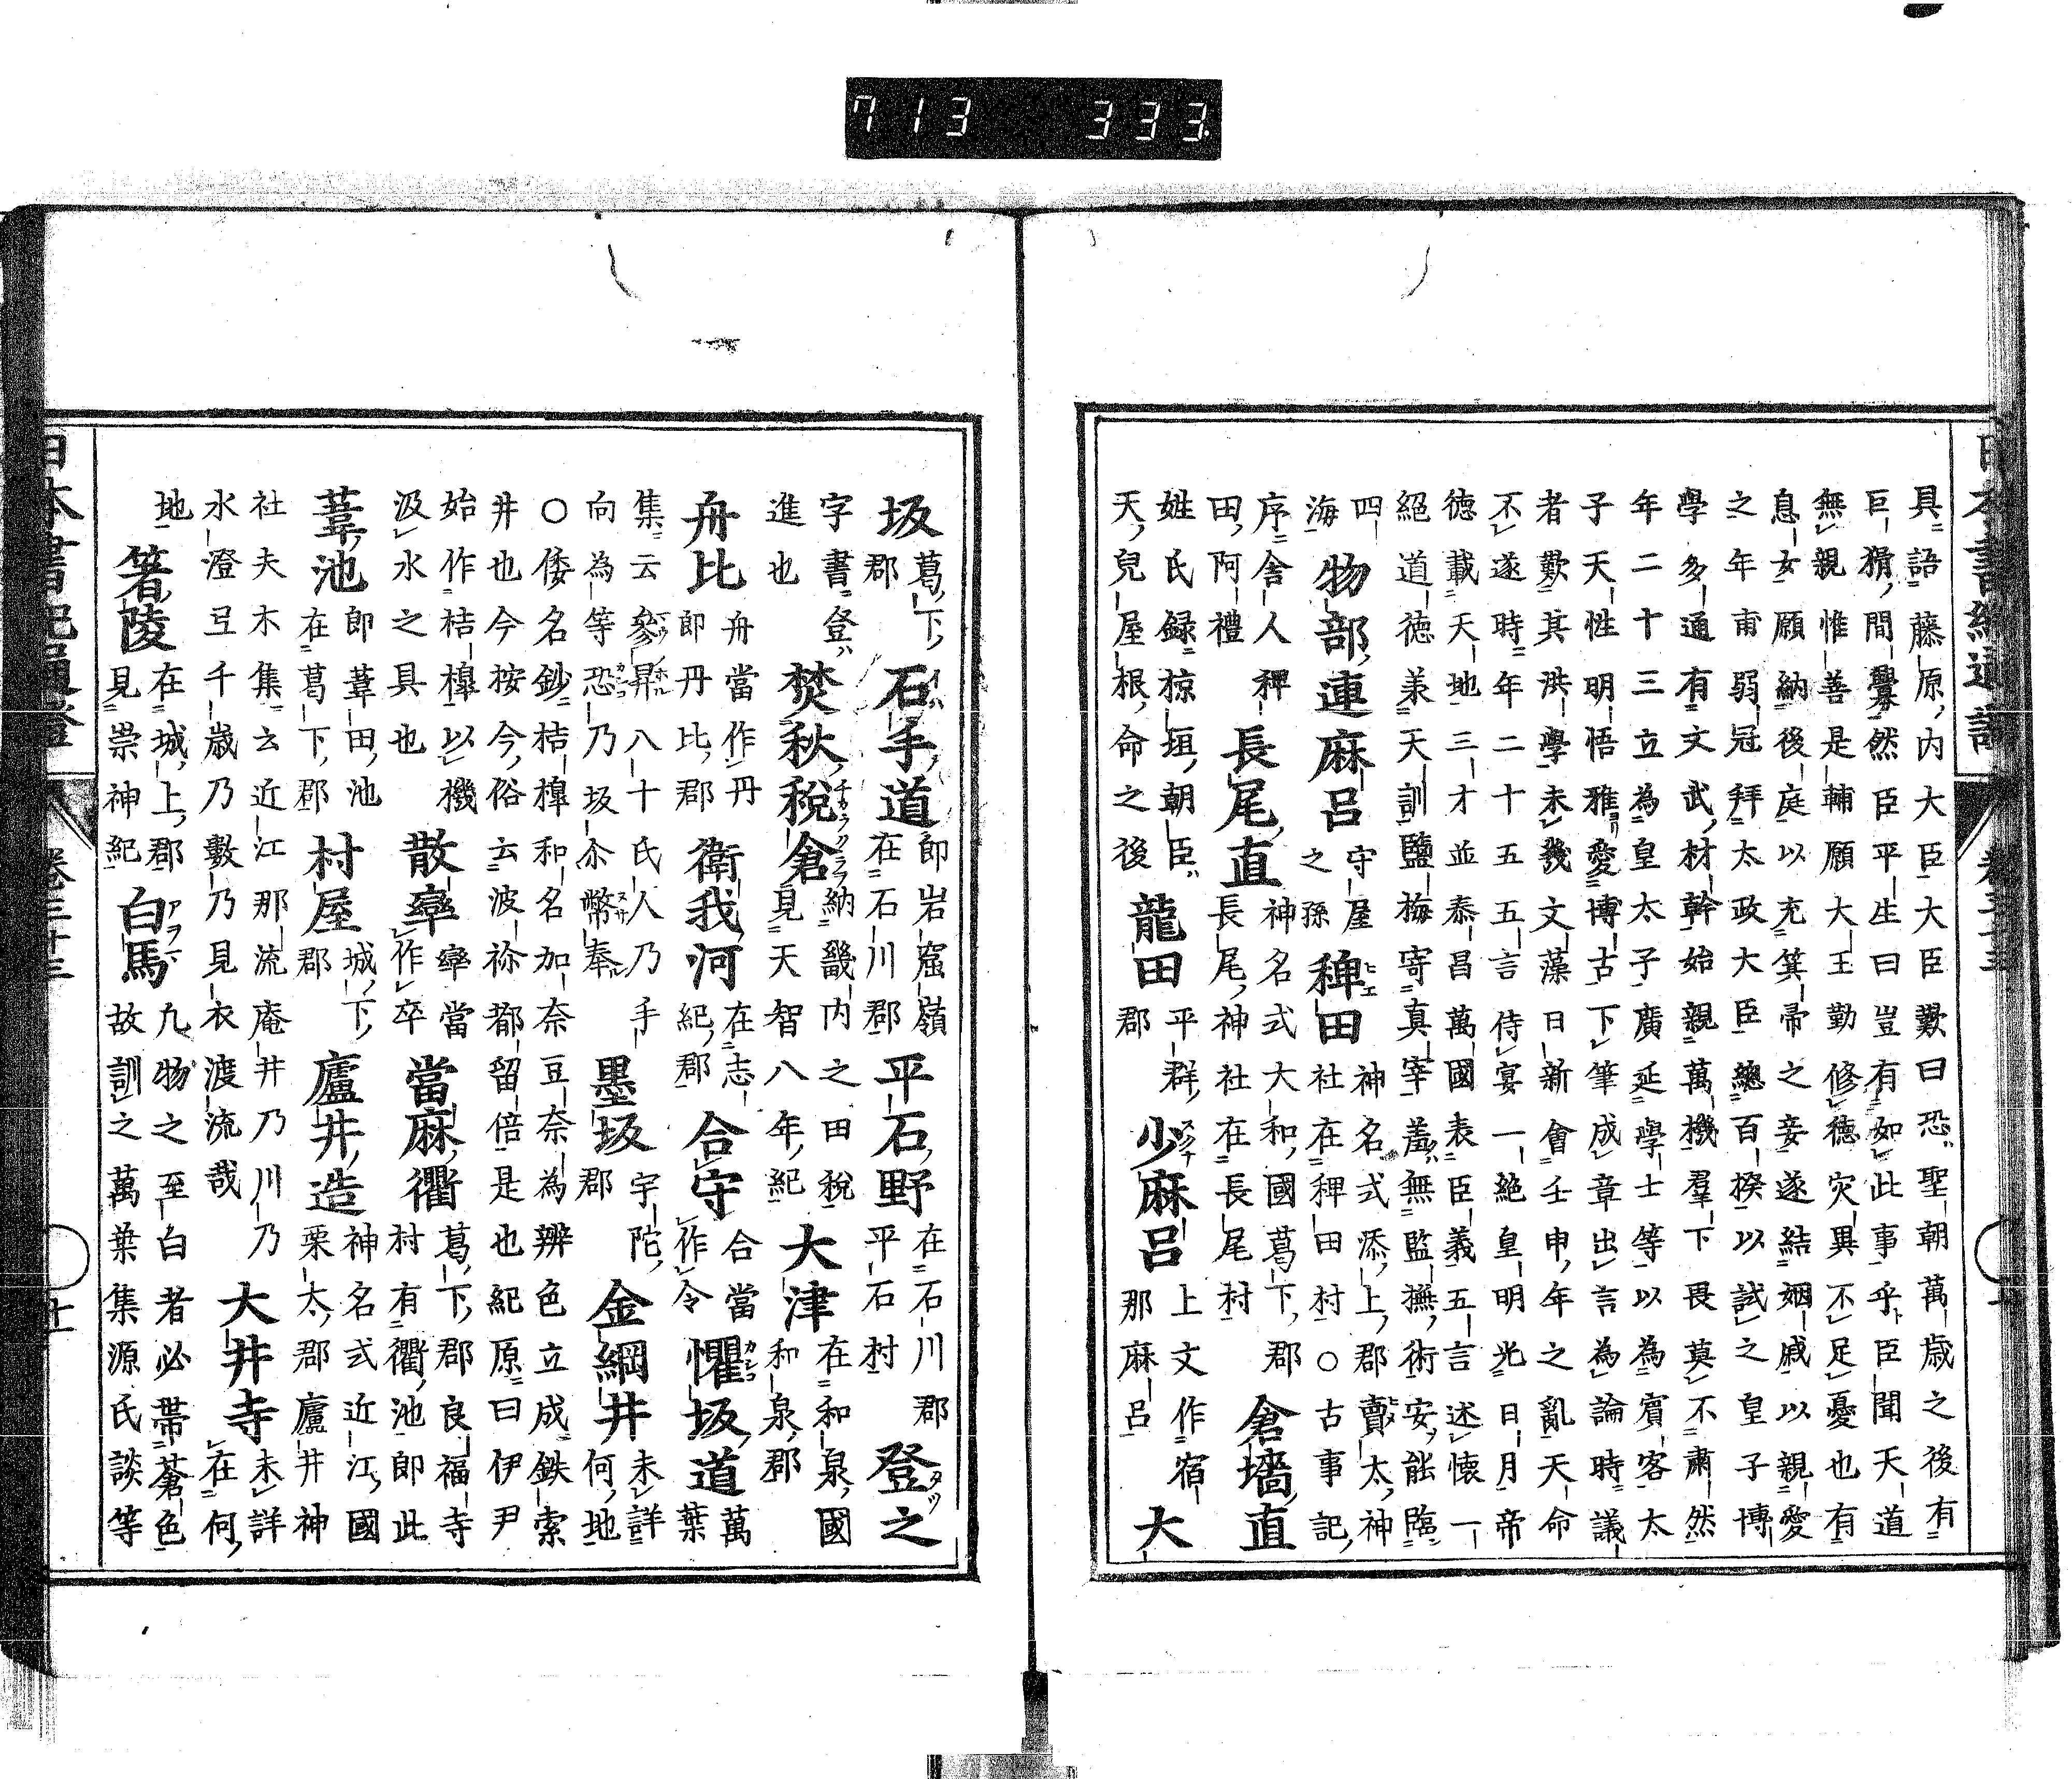 具語藤原內大臣大臣歎曰恐聖朝萬歲之後有
巨猾間釁然臣平生曰豈有如此事乎臣聞天道
無親惟善是輔願大王勤修德灾異不足憂也有
息女願納後庭以充箕帚之妾遂結姻戚以親愛
之年甫弱冠拜太政大臣總百揆以試之皇子博
學多通有文武材幹始親萬機羣下畏莫不肅然
年二十三立為皇太子廣延學士等以為賓客太
子天性明悟雅愛博古下筆成章出言為論時議
者歎其洪學未幾文藻日新會壬申年之亂天命
不遂時年二十五五言侍宴一絕皇明光日月帝
德載天地三才並泰昌萬國表臣義五言述懷一
絕道德羕天訓鹽梅寄真宰羞無監撫術安能臨
四海 物部連麻呂 守屋之孫 稗田 神名式添上郡賣太神社在稗田村○古事記
序舍人稗田阿禮 長尾直 神名式大和國葛下郡長尾神社在長尾村 倉墻直
姓氏録椋垣朝臣天兒屋根命之後 龍田 平群郡 少麻呂 上文作宿那麻呂 大
坂 葛下郡 石手道 即岩窟嶺在石川郡 平石野 在石川郡平石村 登之
字書登進也 焚秋税倉 納畿内之田税見天智八年紀 大津 在和泉國和泉郡
舟比 舟當作丹即丹比郡 衛我河 在志紀郡 合守 合當作令 懼坂道 萬葉
集云參昇八十氏人乃手向為等恐乃坂尒幣奉 墨坂 宇陀郡 金綱井 未詳何地
○倭名鈔桔槹和名加奈豆奈為辨色立成鉄索井也今按今俗云波祢都留倍是也紀原曰伊尹
始作桔槹以機汲水之具也 散卛 卛當作卒 當麻衢 葛下郡良福寺村有衢池即此
葦池 即葦田池在葛下郡 村屋 城下郡 廬井造 神名式近江國栗太郡廬井神
社夫木集云近江那流庵井乃川乃水澄弖千歳乃數乃見衣渡流哉 大井寺 未詳在何地
箸陵 在城上郡見崇神紀 白馬 九物之至白者必帶蒼色故訓之萬葉集源氏談等
713 333